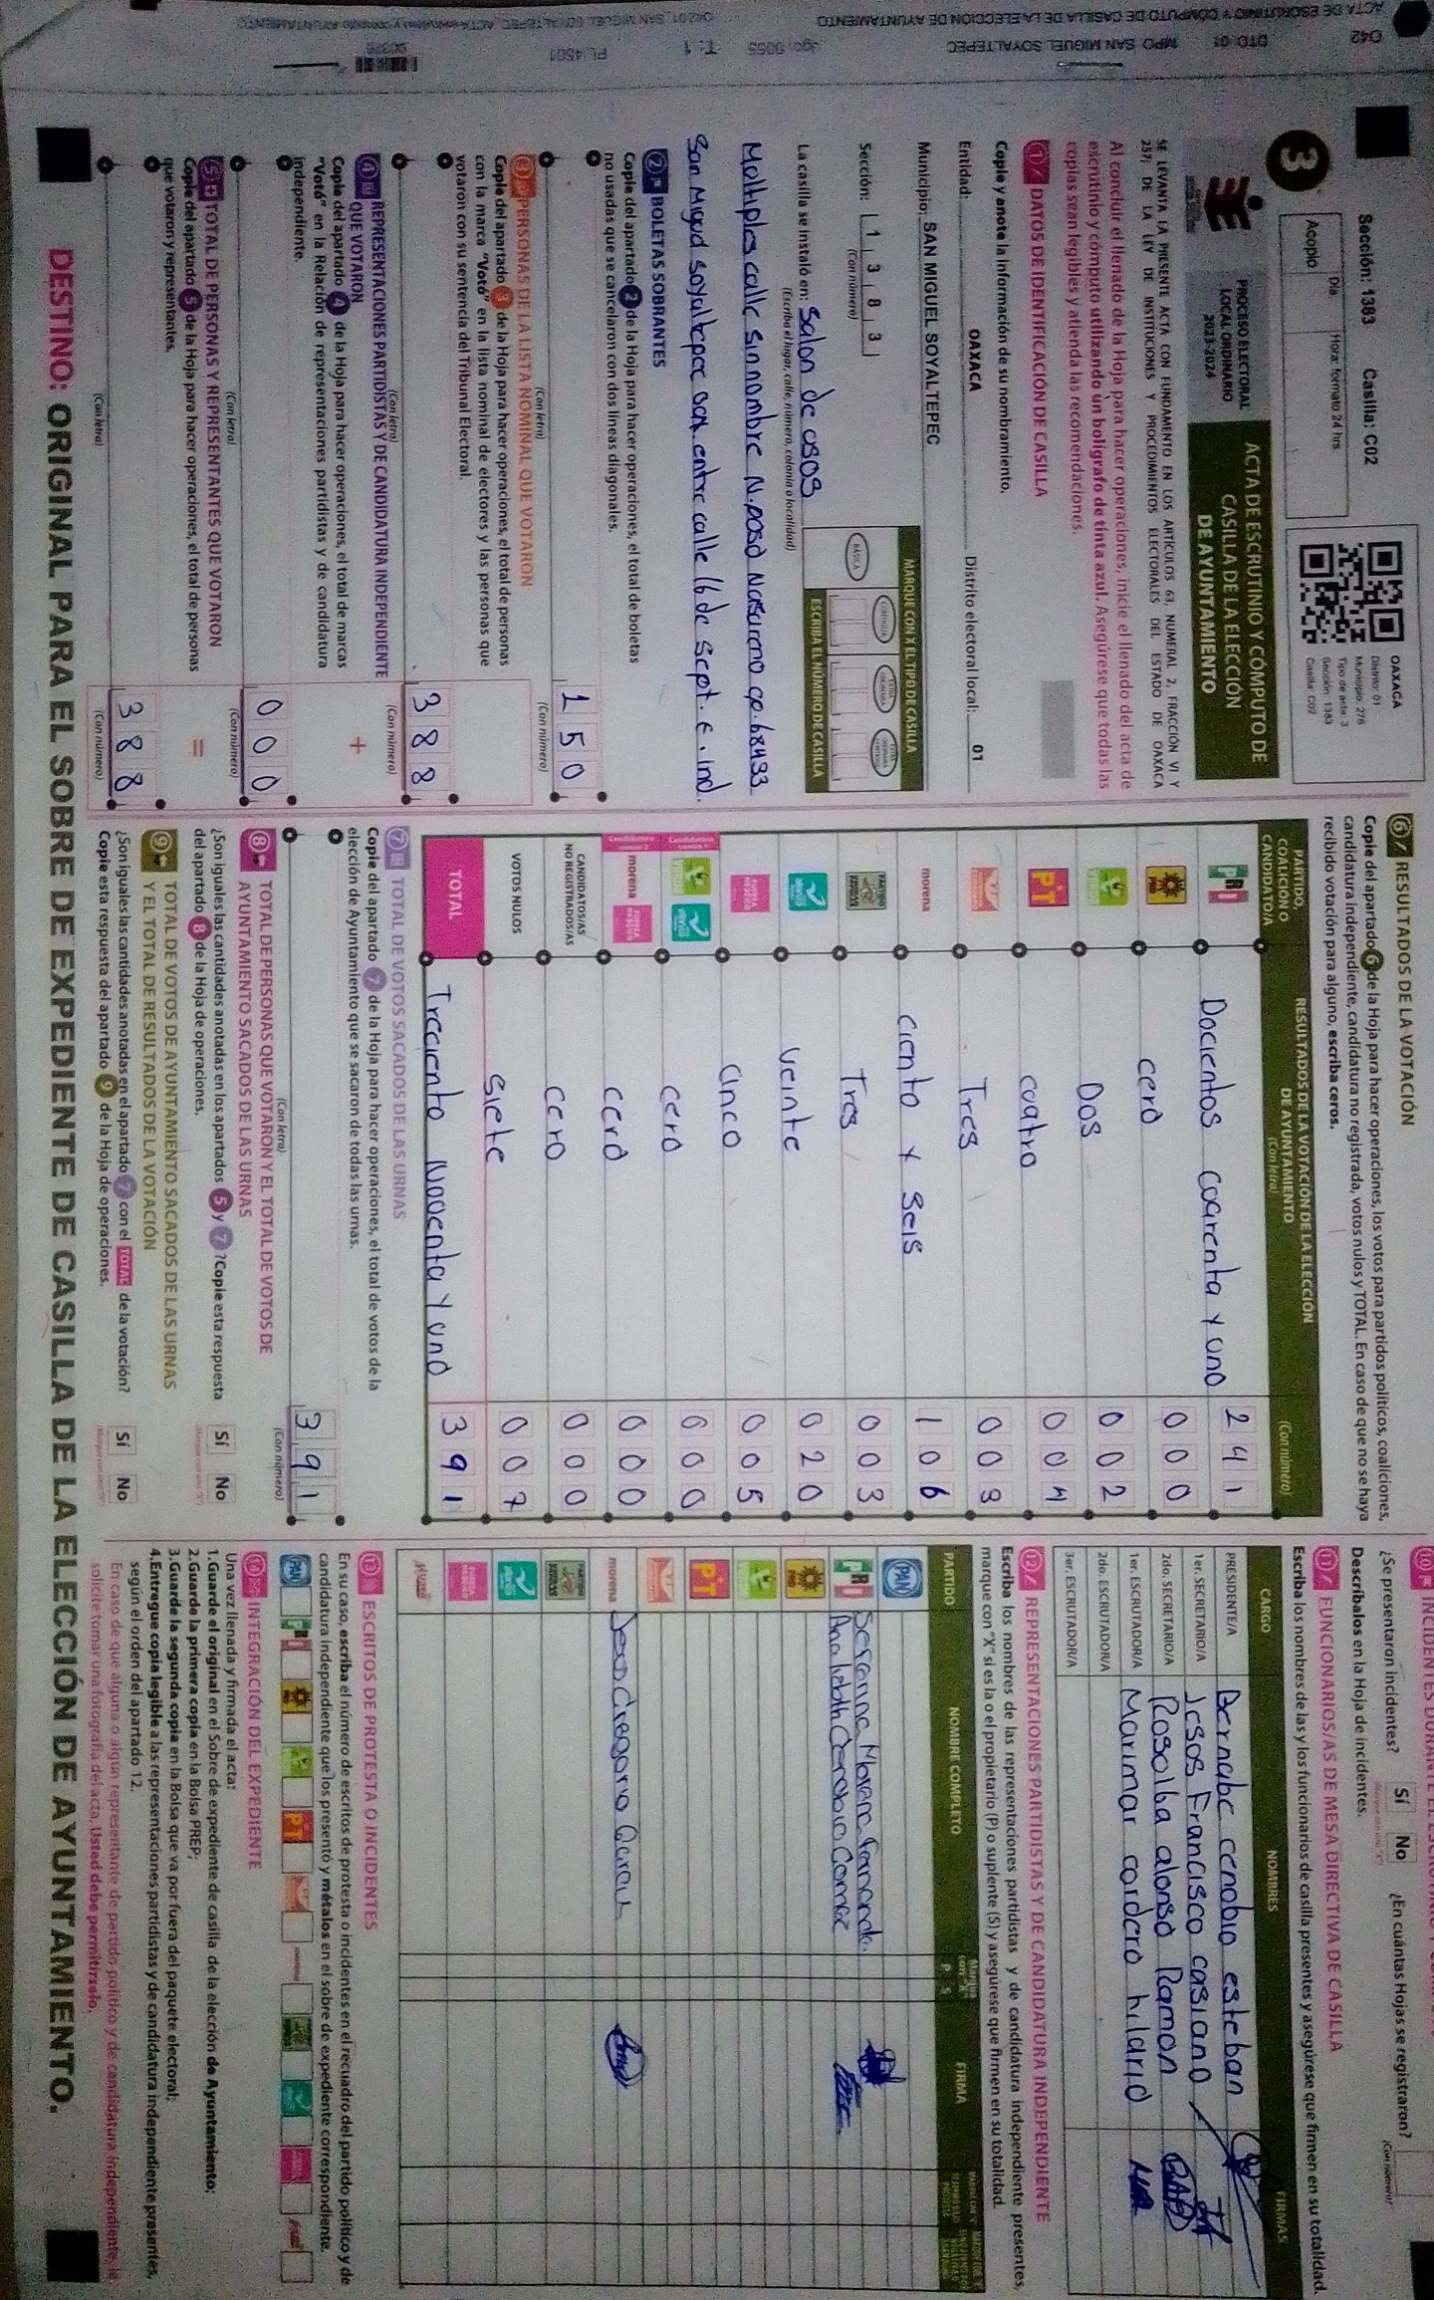 ACTA DE ESCRUTINIO Y CÓMPUTO DE CASILLA DE LA ELECCIÓN DE AYUNTAMIENTO
042
DTO: 01
MPO: SAN MIGUEL SOYALTEPEC
T: 1
PL 4501
Sección: 1383 Casilla: C02
Día
Hora: formato 24 hrs.
Acopio
OAXACA
Distrito: 01
Municipio: 276
Tipo de acta: 3
Sección: 1383
Casilla: C02
3
PROCESO ELECTORAL
LOCAL ORDINARIO
2023-2024
ACTA DE ESCRUTINIO Y CÓMPUTO DE
CASILLA DE LA ELECCIÓN
DE AYUNTAMIENTO
SE LEVANTA LA PRESENTE ACTA CON FUNDAMENTO EN LOS ARTÍCULOS 63, NUMERAL 2, FRACCIÓN VI Y
257; DE LA LEY DE INSTITUCIONES Y PROCEDIMIENTOS ELECTORALES DEL ESTADO DE OAXACA
Al concluir el llenado de la Hoja para hacer operaciones, inicie el llenado del acta de
escrutinio y cómputo utilizando un bolígrafo de tinta azul. Asegúrese que todas las
copias sean legibles y atienda las recomendaciones.
1 DATOS DE IDENTIFICACIÓN DE CASILLA
Copie y anote la información de su nombramiento.
Entidad: OAXACA Distrito electoral local: 01
Municipio: SAN MIGUEL SOYALTEPEC
Sección: 1 3 8 3
(Con número)
MARQUE CON X EL TIPO DE CASILLA
BÁSICA
ESCRIBA EL NÚMERO DE CASILLA
La casilla se instaló en: Salon de usos
(Escriba el lugar, calle, número, colonia o localidad)
Moltiples calle sin nombre N. poso Nosurno cp. 68433
San Miguel soyaltepec oax. entre calle 16 de sept. e. ind.
2 BOLETAS SOBRANTES
Copie del apartado 2 de la Hoja para hacer operaciones, el total de boletas
no usadas que se cancelaron con dos líneas diagonales.
1 5 0
(Con letra) (Con número)
3 PERSONAS DE LA LISTA NOMINAL QUE VOTARON
Copie del apartado 3 de la Hoja para hacer operaciones, el total de personas
con la marca "Votó" en la lista nominal de electores y las personas que
votaron con su sentencia del Tribunal Electoral.
3 8 8
(Con letra) (Con número)
4 REPRESENTACIONES PARTIDISTAS Y DE CANDIDATURA INDEPENDIENTE
QUE VOTARON
+
Copie del apartado 4 de la Hoja para hacer operaciones, el total de marcas
"Votó" en la Relación de representaciones partidistas y de candidatura
independiente.
0 0 0
(Con letra) (Con número)
5 TOTAL DE PERSONAS Y REPRESENTANTES QUE VOTARON
=
Copie del apartado 5 de la Hoja para hacer operaciones, el total de personas
que votaron y representantes.
3 8 8
(Con letra) (Con número)
6 RESULTADOS DE LA VOTACIÓN
Copie del apartado 6 de la Hoja para hacer operaciones, los votos para partidos políticos, coaliciones,
candidatura independiente, candidatura no registrada, votos nulos y TOTAL. En caso de que no se haya
recibido votación para alguno, escriba ceros.
PARTIDO, COALICIÓN O CANDIDATO/A
RESULTADOS DE LA VOTACIÓN DE LA ELECCIÓN DE AYUNTAMIENTO
(Con letra) (Con número)
PRI Docientos coarenta y uno 2 4 1
PRD cero 0 0 0
VERDE Dos 0 0 2
PT coatro 0 0 4
Tres 0 0 3
morena ciento y seis 1 0 6
Tres 0 0 3
veinte 0 2 0
cinco 0 0 5
cero 0 0 0
morena cero 0 0 0
CANDIDATOS/AS NO REGISTRADOS/AS cero 0 0 0
VOTOS NULOS siete 0 0 7
TOTAL Treciento Noventa y uno 3 9 1
7 TOTAL DE VOTOS SACADOS DE LAS URNAS
Copie del apartado 7 de la Hoja para hacer operaciones, el total de votos de la
elección de Ayuntamiento que se sacaron de todas las urnas.
3 9 1
(Con letra) (Con número)
8 TOTAL DE PERSONAS QUE VOTARON Y EL TOTAL DE VOTOS DE
AYUNTAMIENTO SACADOS DE LAS URNAS
¿Son iguales las cantidades anotadas en los apartados 5 y 7? Copie esta respuesta
del apartado 8 de la Hoja de operaciones.
Sí No
9 TOTAL DE VOTOS DE AYUNTAMIENTO SACADOS DE LAS URNAS
Y EL TOTAL DE RESULTADOS DE LA VOTACIÓN
¿Son iguales las cantidades anotadas en el apartado 7 con el TOTAL de la votación?
Copie esta respuesta del apartado 9 de la Hoja de operaciones.
Sí No
¿Se presentaron incidentes? Sí No ¿En cuántas Hojas se registraron?
(Con número)
Descríbalos en la Hoja de incidentes.
11 FUNCIONARIOS/AS DE MESA DIRECTIVA DE CASILLA
Escriba los nombres de las y los funcionarios de casilla presentes y asegúrese que firmen en su totalidad.
CARGO NOMBRES FIRMAS
PRESIDENTE/A Bernabe cenobio esteban
1er. SECRETARIO/A Jesos Francisco casiano
2do. SECRETARIO/A Rosalba alonso Ramon
1er. ESCRUTADOR/A Marimar cordero hilario
2do. ESCRUTADOR/A
3er. ESCRUTADOR/A
12 REPRESENTACIONES PARTIDISTAS Y DE CANDIDATURA INDEPENDIENTE
Escriba los nombres de las representaciones partidistas y de candidatura independiente presentes,
marque con "X" si es la o el propietario (P) o suplente (S) y asegúrese que firmen en su totalidad.
PARTIDO NOMBRE COMPLETO P S FIRMA
PAN
PRI
PRD
VERDE
PT
morena
13 ESCRITOS DE PROTESTA O INCIDENTES
En su caso, escriba el número de escritos de protesta o incidentes en el recuadro del partido político y de
candidatura independiente que los presentó y métalos en el sobre de expediente correspondiente.
14 INTEGRACIÓN DEL EXPEDIENTE
Una vez llenada y firmada el acta:
1.Guarde el original en el Sobre de expediente de casilla de la elección de Ayuntamiento;
2.Guarde la primera copia en la Bolsa PREP;
3.Guarde la segunda copia en la Bolsa que va por fuera del paquete electoral;
4.Entregue copia legible a las representaciones partidistas y de candidatura independiente presentes,
según el orden del apartado 12.
En caso de que alguna o algún representante de partido político y de candidatura independiente, le
solicite tomar una fotografía del acta, Usted debe permitírselo.
DESTINO: ORIGINAL PARA EL SOBRE DE EXPEDIENTE DE CASILLA DE LA ELECCIÓN DE AYUNTAMIENTO.